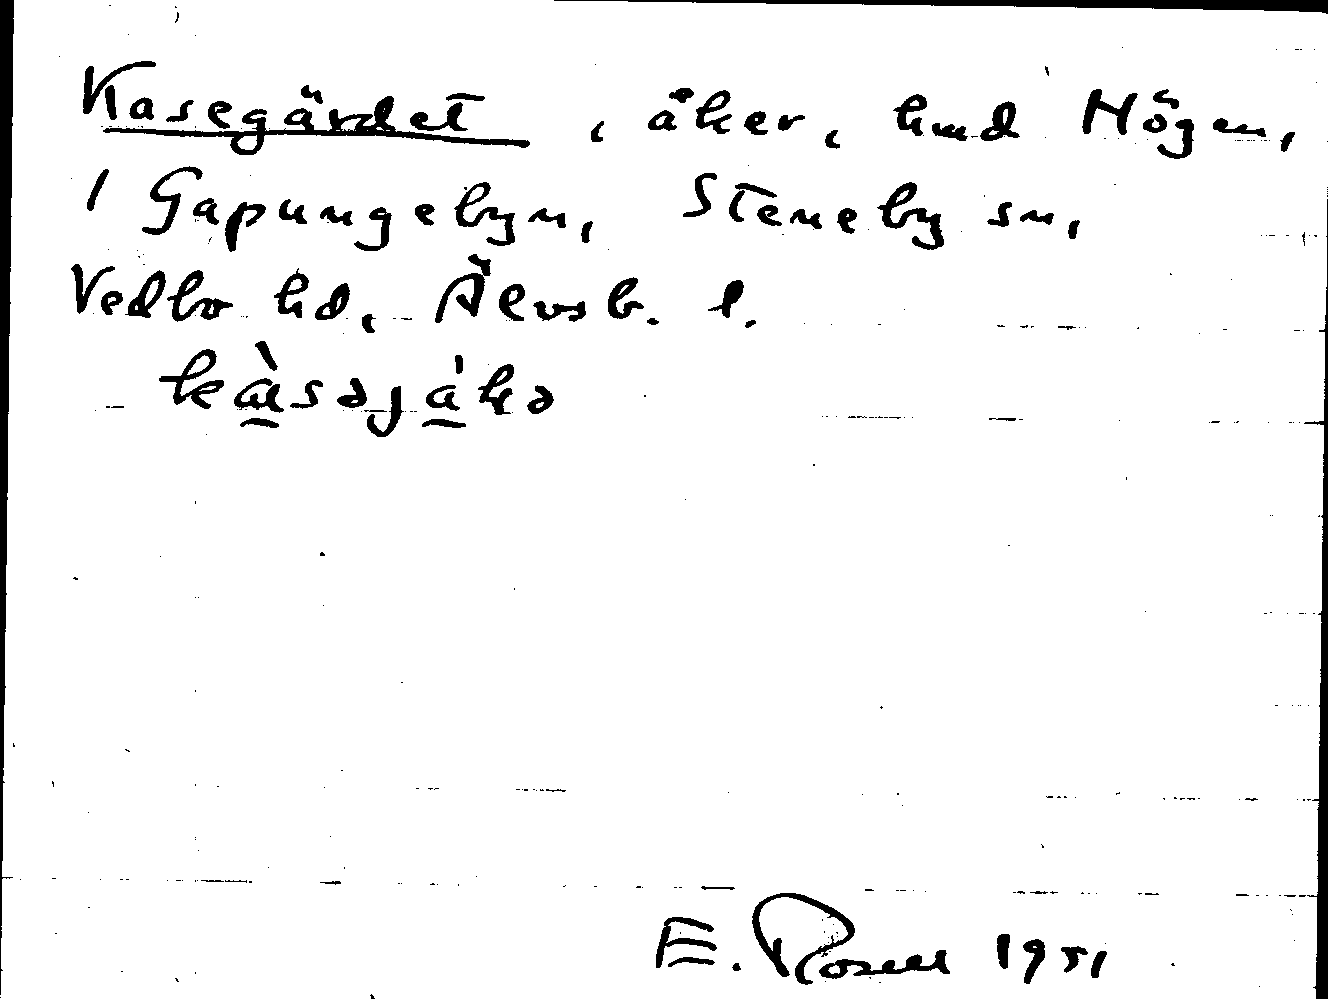 Kasegärdet, åker, hmd Högen,
1 Gapungebyn, Steneby sn,
Vedbo hd, Älvsb. l.
E. Rosell 1951